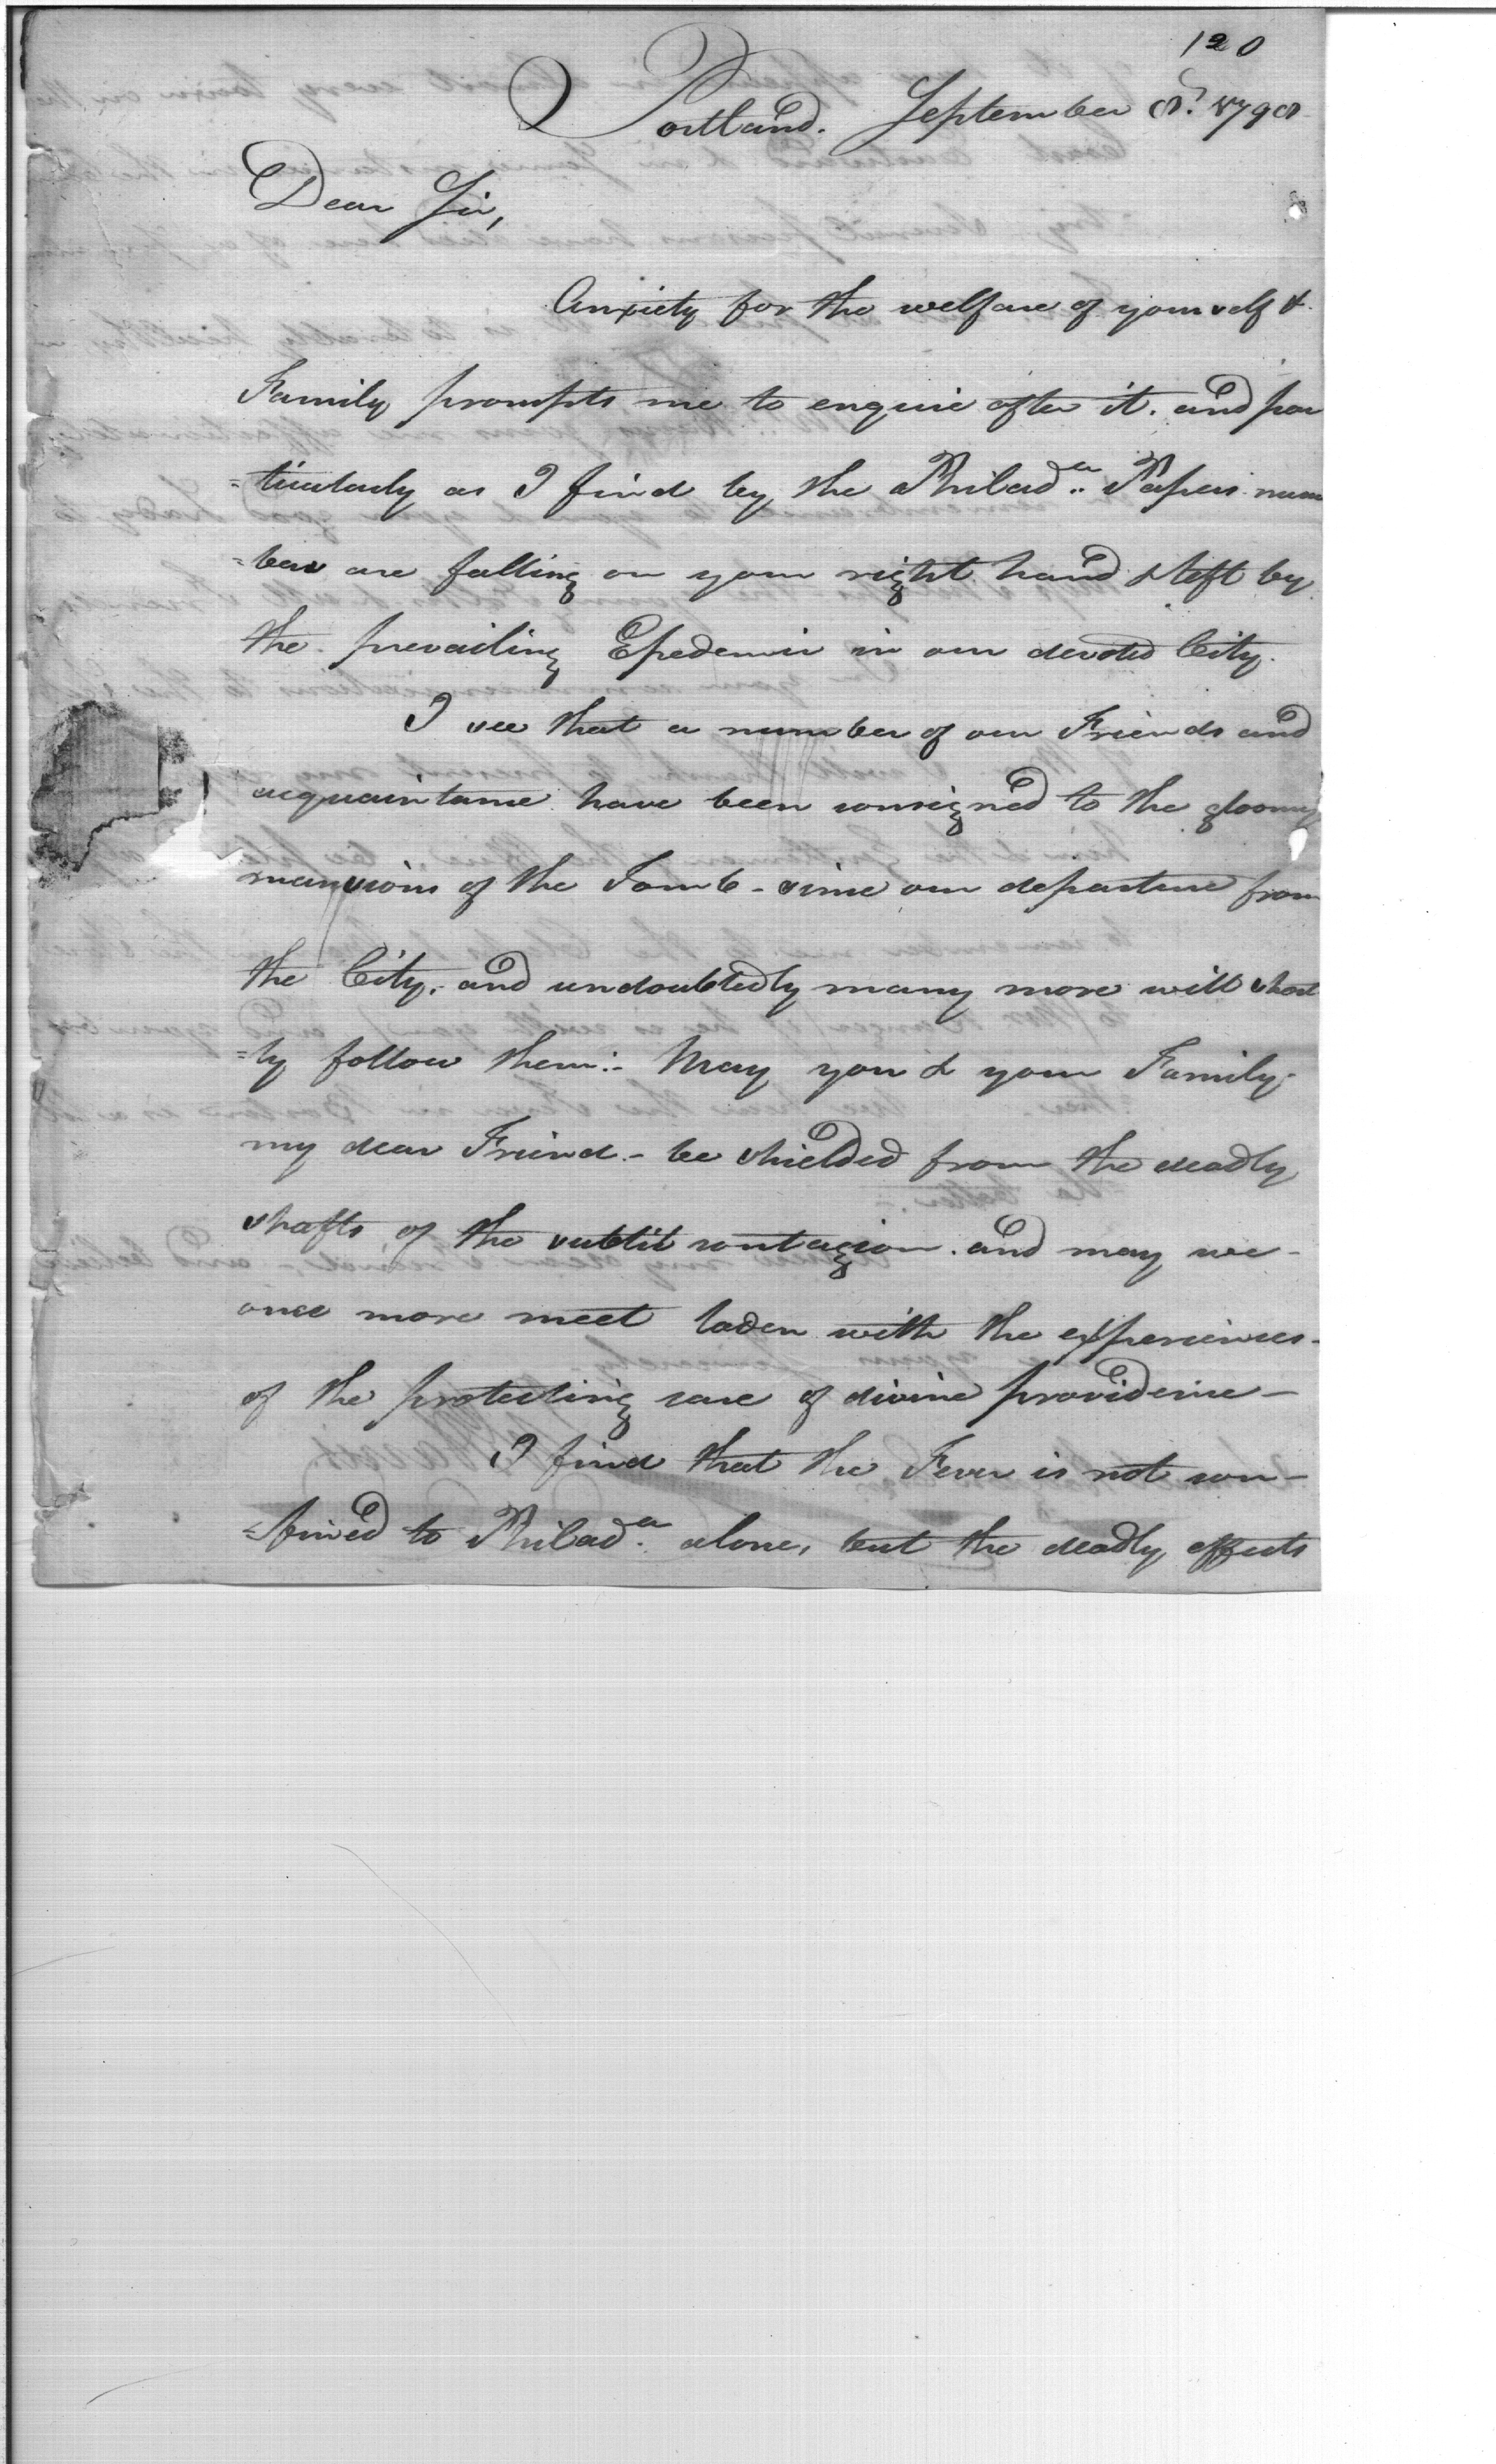 120
Portland. September 8. 1798
Dear Sir,
Anxiety for the welfare of yourself &
Family prompts me to enquire after it. and par
=ticularly as I find by the Philad.a Papers num
=bers are falling on your right hand & left by
the prevailing Epedemic in our devoted City.
I see that a number of our Friends and
acquaintance have been consigned to the gloomy
mansions of the Tomb - since our departure from
the City, and undoubtedly many more will short
=ly follow them:- May you & your Family-
my dear Friend - be shielded from the deadly
shafts of the subtil contagion. and may we-
once more meet laden with the experiences-
of the protecting care of divine providence-
I find that the Fever is not con-
=fined to Philad.a alone, but the deadly effects